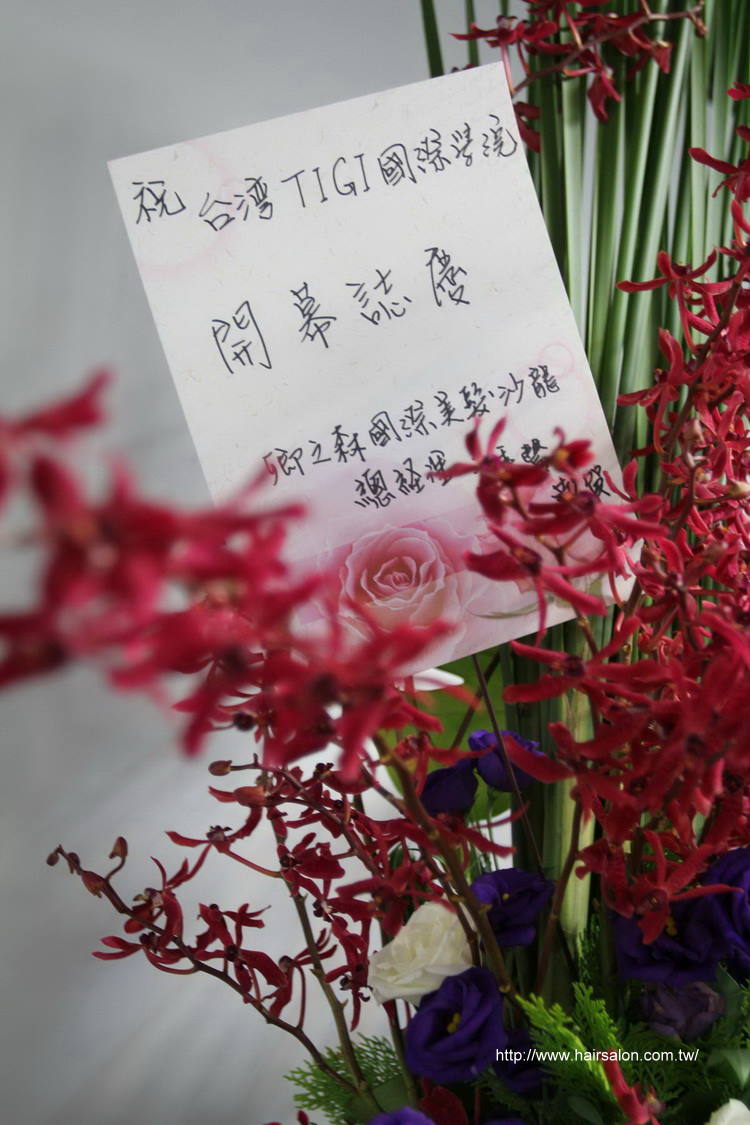 祝 台湾 TIGI 國際学院
開幕誌慶
卿之森國際美髮沙龍
總経理 敬賀
http://www.hairsalon.com.tw/